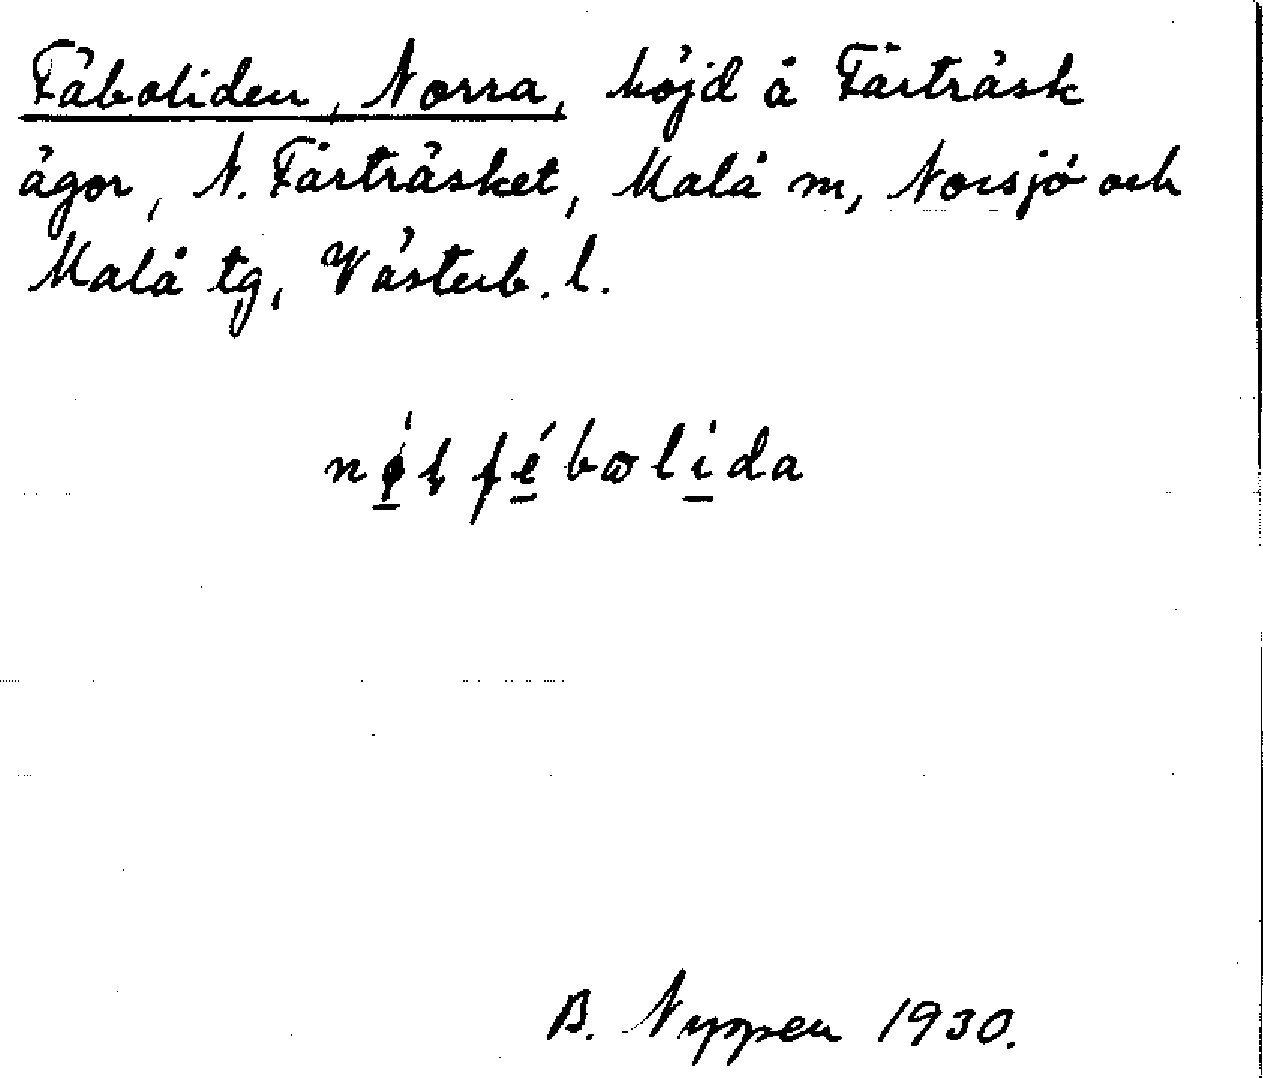 Fäboliden, Norra, höjd å Färträsk
ägor, N. Färträsket, Malå m, Norsjö och
Malå tg, Västerb. l.
fébolida
B. Nyppen 1930.